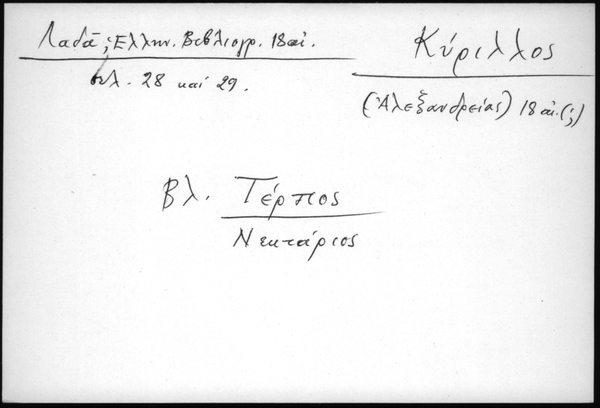 Λαδᾶ, Ἑλλην. Βιβλιογρ. 18 αἰ.
σελ. 28 καί 29.
Κύριλλος
(Ἀλεξανδρείας) 18 αἰ. (;)
Βλ. Τέρπος
Νεκτάριος